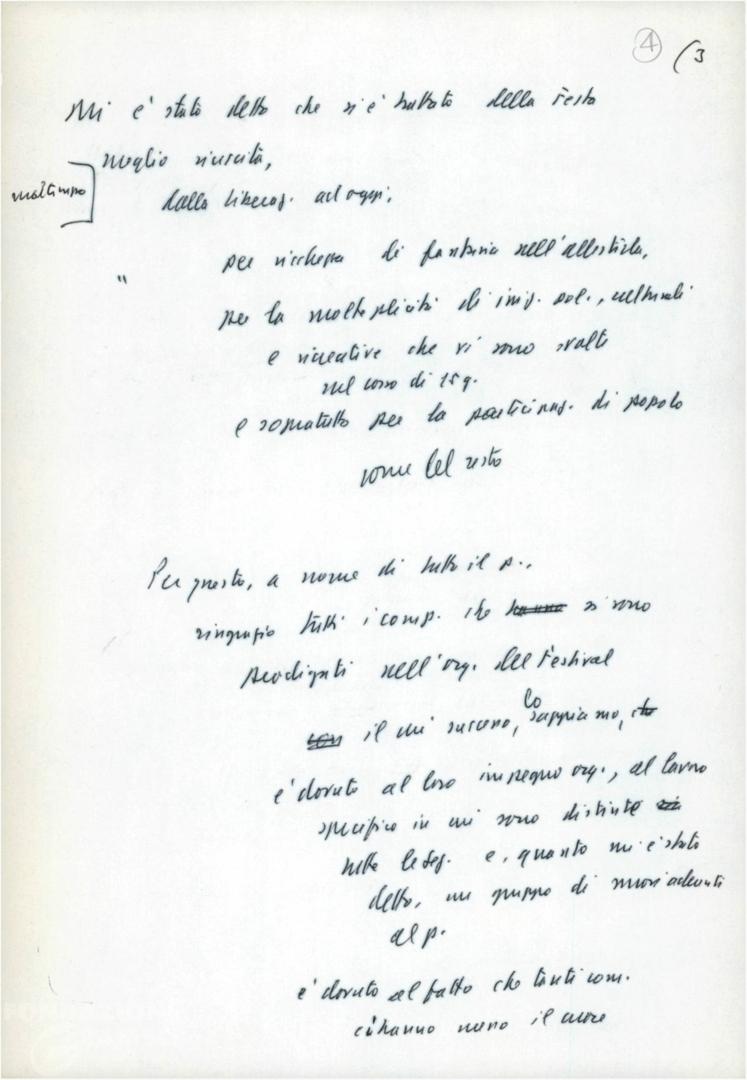 4 (3
Mi è stato detto che si è trattato della Festa
meglio riuscita,
maltempo
dalla Liberaz. ad oggi,
per ricchezza di fantasia nell'allestirla,
"
per la molteplicità di iniz. pol., culturali
e ricreative che vi sono svolte
nel corso di 15 g.
e sopratutto per la partecipaz. di popolo
come del resto
Per questo, a nome di tutto il p.,
ringrazio tutti i comp. che hanno si sono
prodigati nell'org. del Festival
con il cui successo, lo sappiamo, che
è dovuto al loro impegno org., al lavoro
specifico in cui sono distinte
tutte le sez. e, quanto mi è stato
detto, un gruppo di nuovi aderenti
al p.
è dovuto al fatto che tanti com.
ci hanno messo il cuore